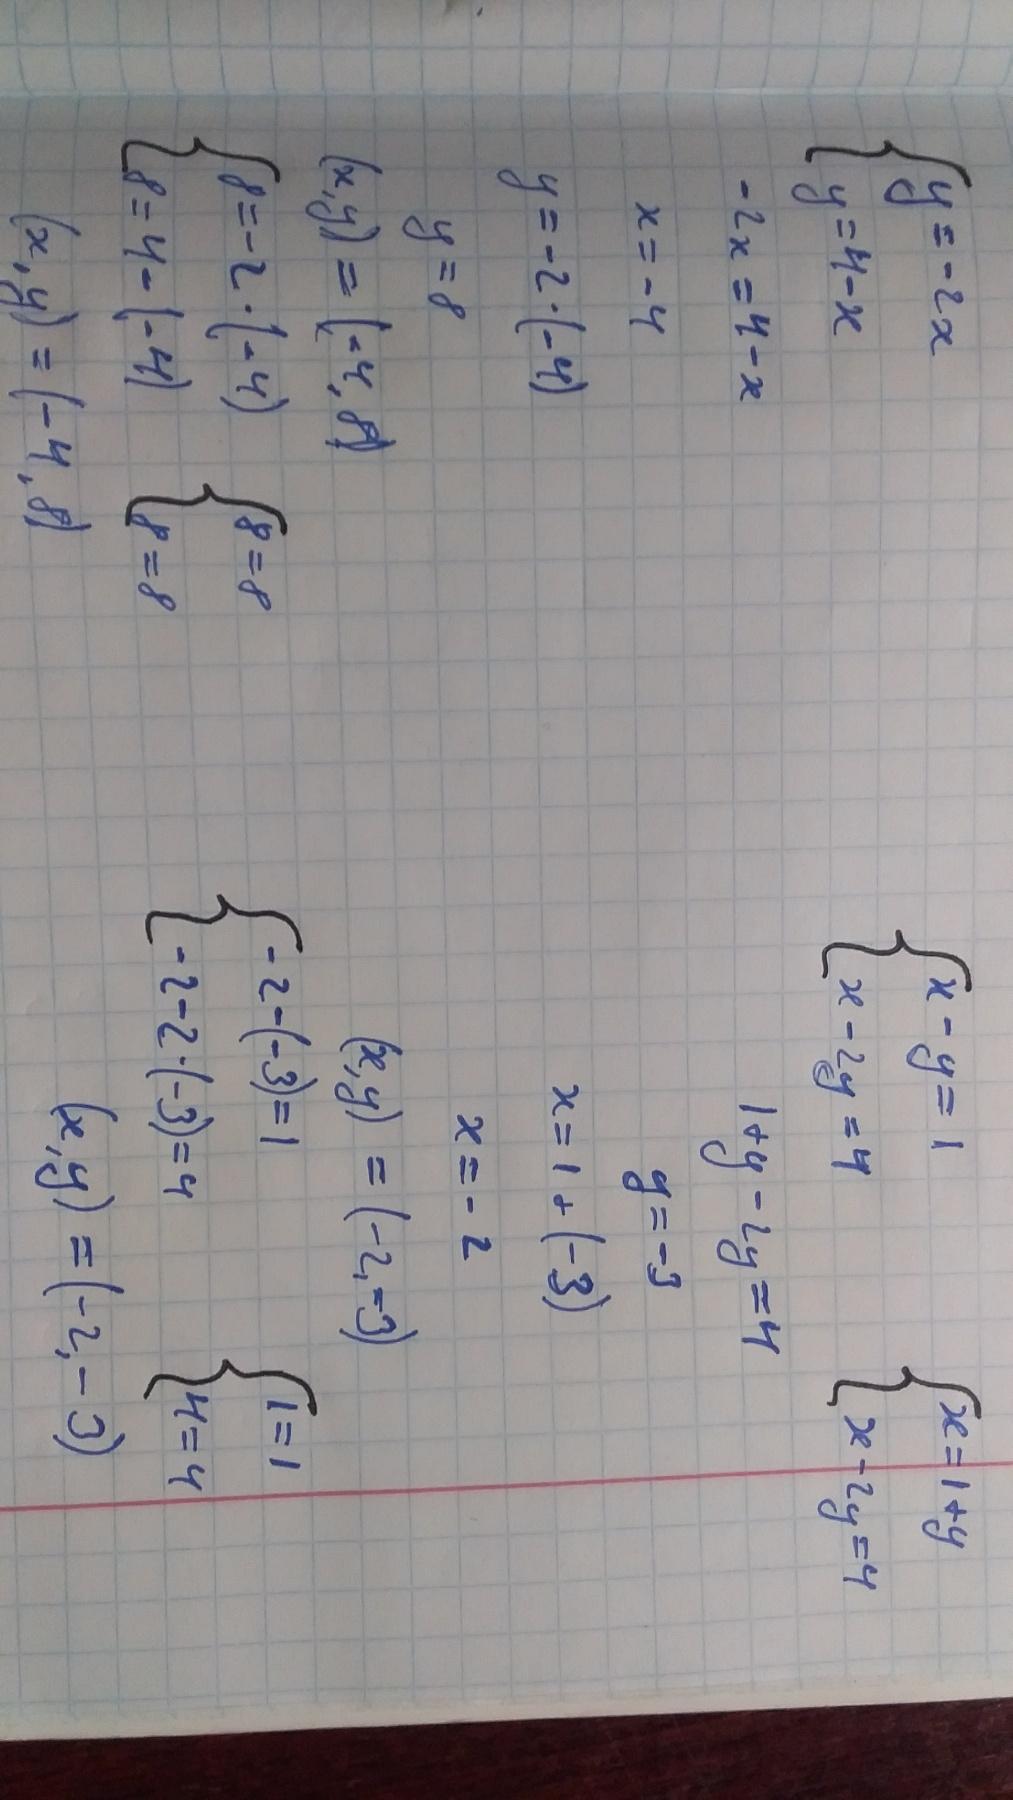 { y = -2x
{ y = 4-x
-2x = 4-x
x = -4
y = -2·(-4)
y = 8
(x,y) = (-4, 8)
{ 8 = -2·(-4) { 8 = 8
{ 8 = 4-(-4) { 8 = 8
(x,y) = (-4, 8)
{ x - y = 1 { x = 1+y
{ x - 2y = 4 { x - 2y = 4
1+y - 2y = 4
y = -3
x = 1 + (-3)
x = -2
(x,y) = (-2, -3)
{ -2-(-3) = 1 { 1 = 1
{ -2-2·(-3) = 4 { 4 = 4
(x,y) = (-2, -3)